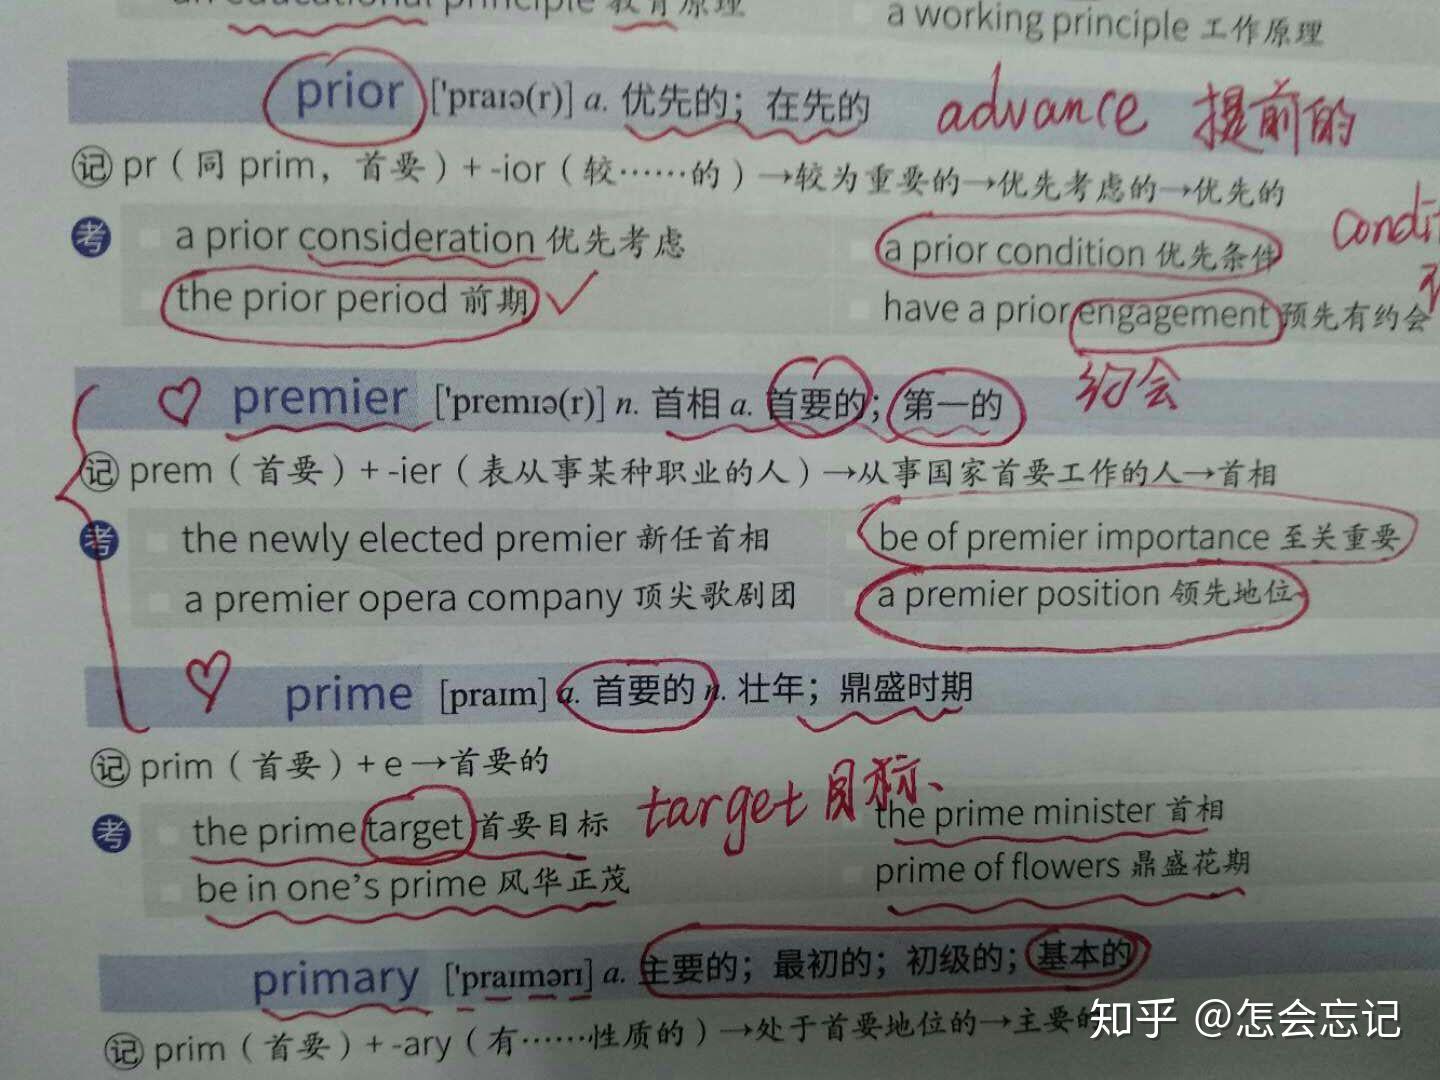 educational principle 教育原理
a working principle 工作原理
prior ['praɪə(r)] a. 优先的；在先的 advance 提前的
记 pr（同 prim，首要）+ -ior（较……的）→较为重要的→优先考虑的→优先的
考 a prior consideration 优先考虑 a prior condition 优先条件
the prior period 前期 have a prior engagement 预先有约会
约会
premier ['premɪə(r)] n. 首相 a. 首要的；第一的
记 prem（首要）+ -ier（表从事某种职业的人）→从事国家首要工作的人→首相
考 the newly elected premier 新任首相 be of premier importance 至关重要
a premier opera company 顶尖歌剧团 a premier position 领先地位
prime [praɪm] a. 首要的 n. 壮年；鼎盛时期
记 prim（首要）+ e→首要的
target 目标、
考 the prime target 首要目标 the prime minister 首相
be in one's prime 风华正茂 prime of flowers 鼎盛花期
primary ['praɪmərɪ] a. 主要的；最初的；初级的；基本的
记 prim（首要）+ -ary（有……性质的）→处于首要地位的→主要的
知乎 @怎会忘记